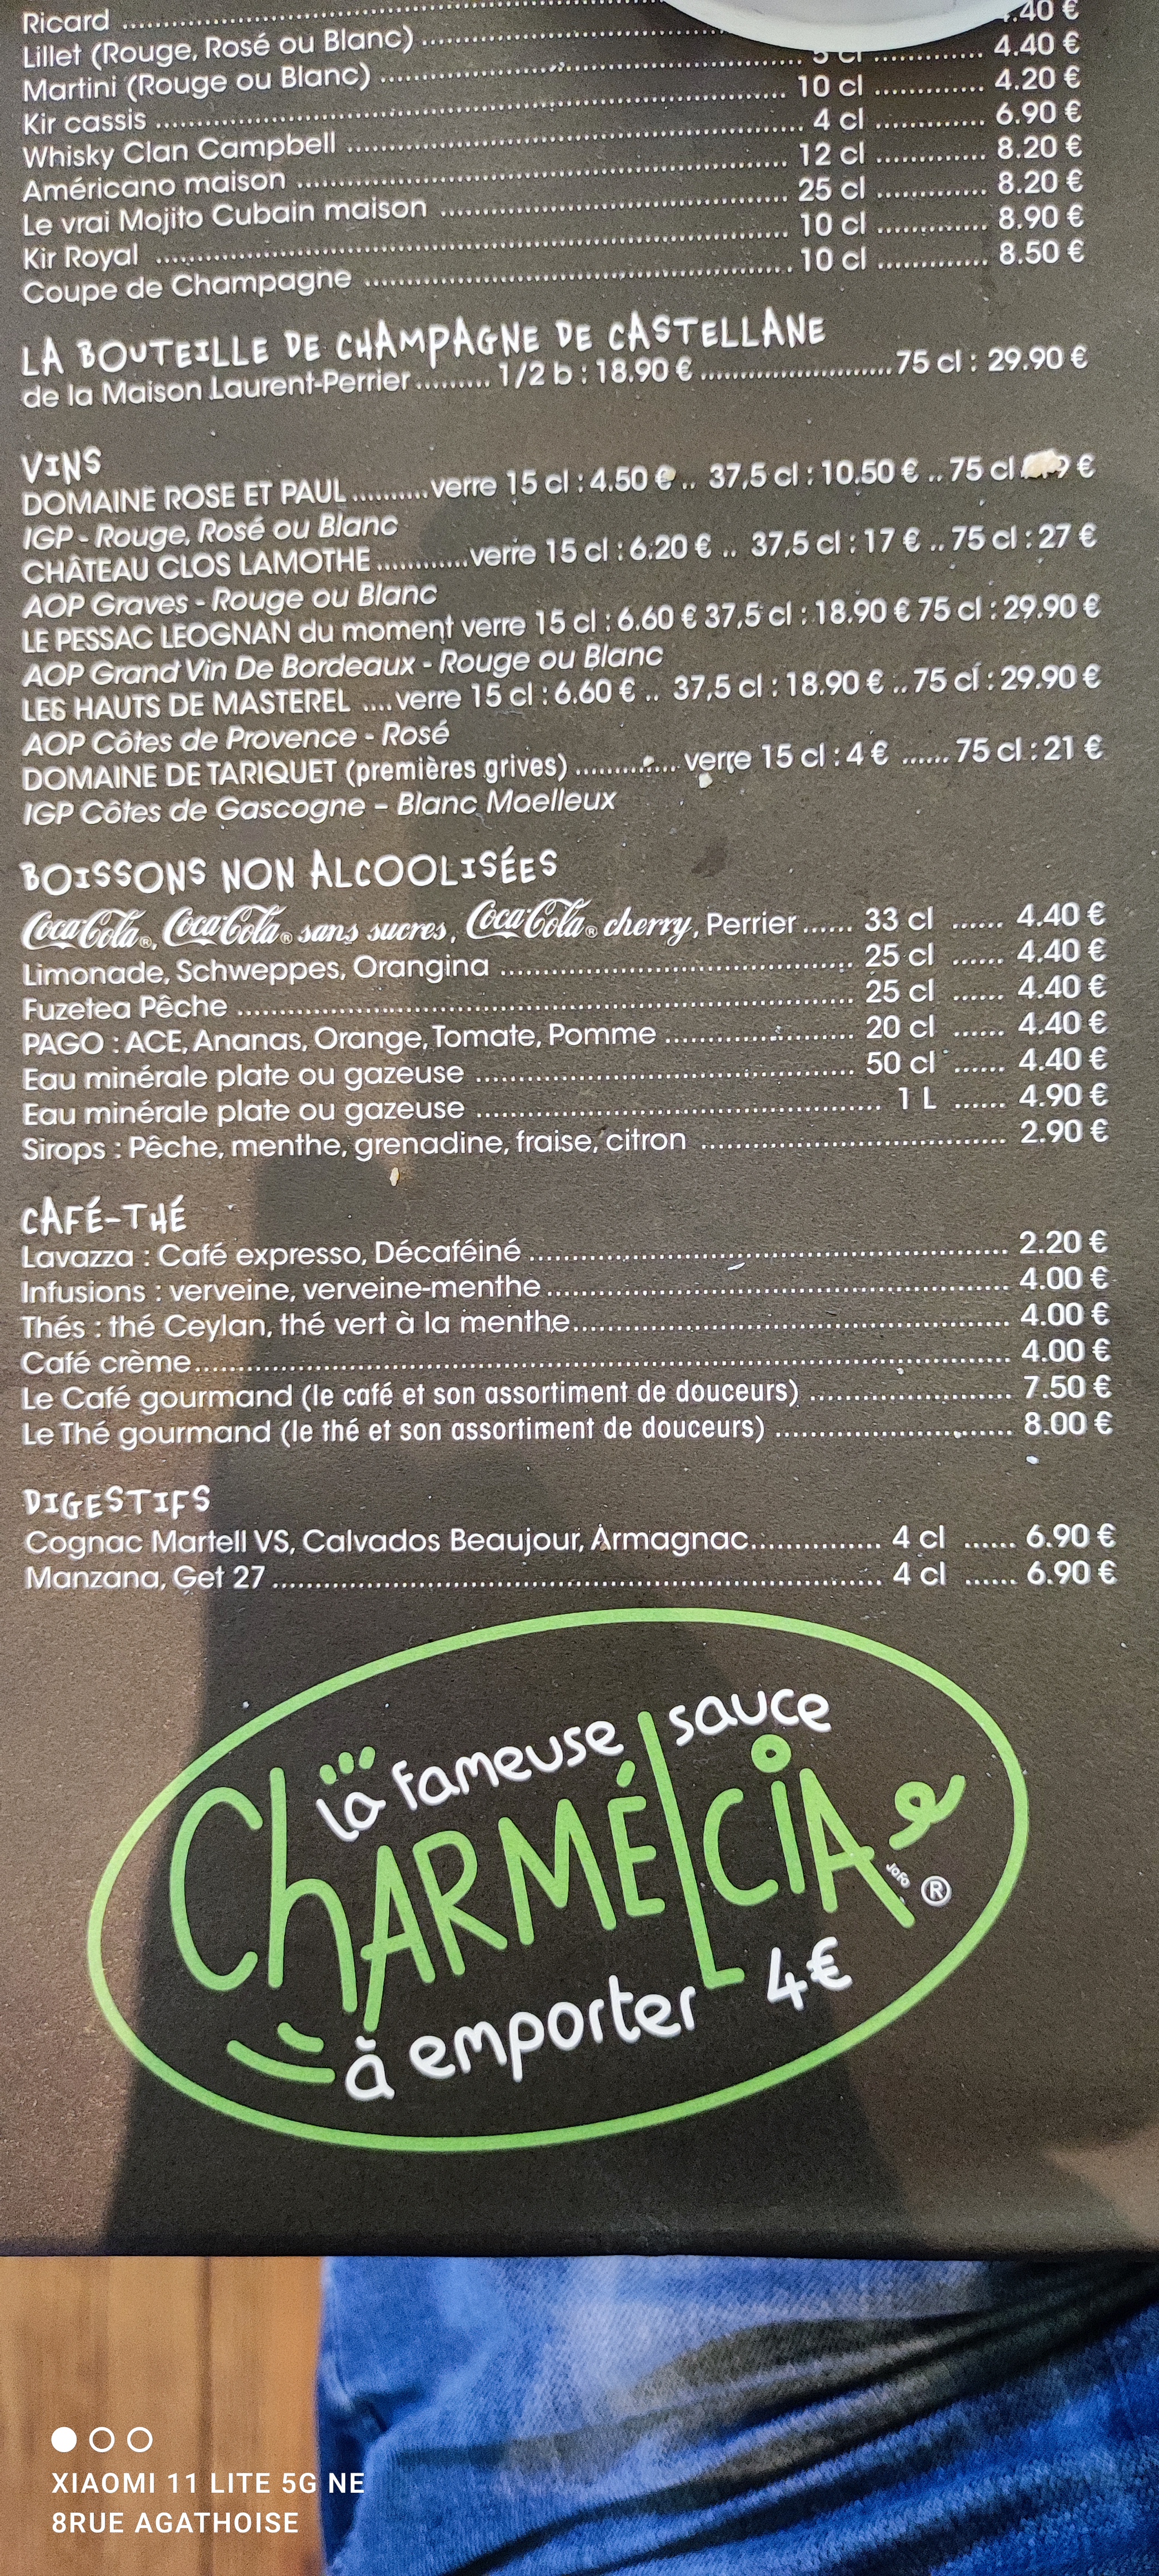 Ricard
Lillet (Rouge, Rosé ou Blanc) .40 €
Martini (Rouge ou Blanc) 5 cl 4.40 €
Kir cassis 10 cl 4.20 €
Whisky Clan Campbell 4 cl 6.90 €
Américano maison 12 cl 8.20 €
Le vrai Mojito Cubain maison 25 cl 8.20 €
Kir Royal 10 cl 8.90 €
Coupe de Champagne 10 cl 8.50 €
LA BOUTEILLE DE CHAMPAGNE DE CASTELLANE
de la Maison Laurent-Perrier ......... 1/2 b : 18.90 € ......... 75 cl : 29.90 €
VINS
DOMAINE ROSE ET PAUL .......... verre 15 cl : 4.50 € .. 37,5 cl : 10.50 € .. 75 cl €
IGP - Rouge, Rosé ou Blanc
CHÂTEAU CLOS LAMOTHE ............ verre 15 cl : 6.20 € .. 37,5 cl : 17 € .. 75 cl : 27 €
AOP Graves - Rouge ou Blanc
LE PESSAC LEOGNAN du moment verre 15 cl : 6.60 € 37,5 cl : 18.90 € 75 cl : 29.90 €
AOP Grand Vin De Bordeaux - Rouge ou Blanc
LES HAUTS DE MASTEREL .... verre 15 cl : 6.60 € .. 37,5 cl : 18.90 € .. 75 cl : 29.90 €
AOP Côtes de Provence - Rosé
DOMAINE DE TARIQUET (premières grives) ............. verre 15 cl : 4 € ...... 75 cl : 21 €
IGP Côtes de Gascogne – Blanc Moelleux
BOISSONS NON ALCOOLISÉES
Coca-Cola®, Coca-Cola® sans sucres, Coca-Cola® cherry, Perrier ...... 33 cl ...... 4.40 €
Limonade, Schweppes, Orangina ...... 25 cl ...... 4.40 €
Fuzetea Pêche ...... 25 cl ...... 4.40 €
PAGO : ACE, Ananas, Orange, Tomate, Pomme ...... 20 cl ...... 4.40 €
Eau minérale plate ou gazeuse ...... 50 cl ...... 4.40 €
Eau minérale plate ou gazeuse ...... 1 L ...... 4.90 €
Sirops : Pêche, menthe, grenadine, fraise, citron ...... 2.90 €
CAFÉ-THÉ
Lavazza : Café expresso, Décaféiné ...... 2.20 €
Infusions : verveine, verveine-menthe ...... 4.00 €
Thés : thé Ceylan, thé vert à la menthe ...... 4.00 €
Café crème ...... 4.00 €
Le Café gourmand (le café et son assortiment de douceurs) ...... 7.50 €
Le Thé gourmand (le thé et son assortiment de douceurs) ...... 8.00 €
DIGESTIFS
Cognac Martell VS, Calvados Beaujour, Armagnac ...... 4 cl ...... 6.90 €
Manzana, Get 27 ...... 4 cl ...... 6.90 €
la fameuse sauce
CHARMÉLCIA
JoFo ®
à emporter 4€
XIAOMI 11 LITE 5G NE
8RUE AGATHOISE